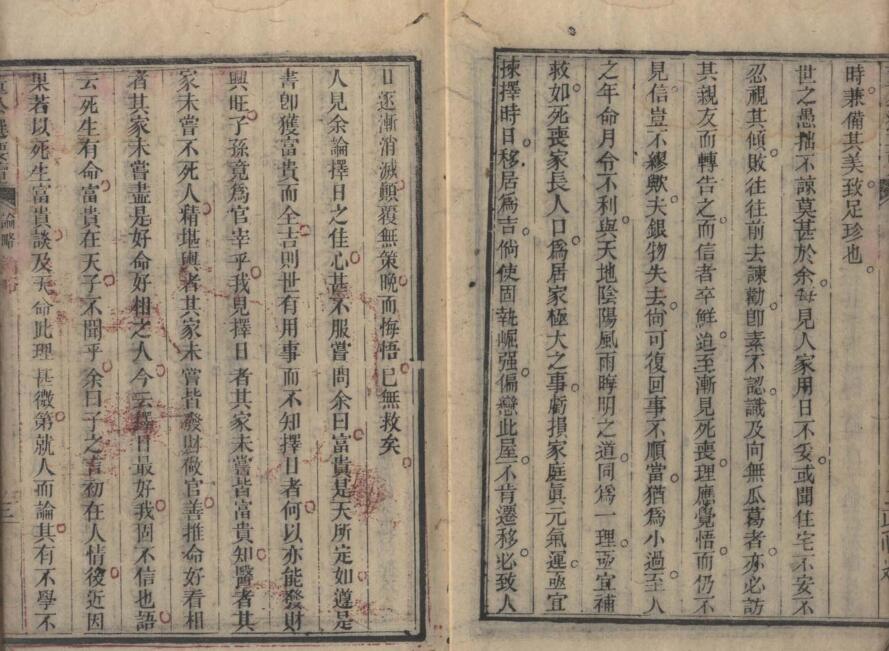 時兼備其美致足珍也
世之愚拙不諒莫甚於余每見人家用日不妥或聞住宅不安不
忍視其傾敗往往前去諫勸卽素不認識及向無瓜葛者亦必訪
其親友而轉告之而信者卒鮮迨至漸見死喪理應覺悟而仍不
見信豈不繆歟夫銀物失去尙可復回事不順當猶爲小過至人
之年命月令不利與天地陰陽風雨晦明之道同爲一理亟宜補
救如死喪家長人口爲居家極大之事虧損家庭眞元氣運亟宜
揀擇時日移居爲吉倘使固執崛强偏戀此屋不肯遷移必致人
口逐漸消滅顚覆無策晚而悔悟已無救矣
人見余論擇日之佳心甚不服嘗問余曰富貴是天所定如遵是
書卽獲富貴而全吉則世有用事而不知擇日者何以亦能發財
興旺子孫竟爲官宰乎我見擇日者其家未嘗皆富貴知醫者其
家未嘗不死人精堪輿者其家未嘗皆發財做官善推命好看相
者其家未嘗盡是好命好相之人今云擇日最好我固不信也語
云死生有命富貴在天子不聞乎余曰子之言初在人情後近因
果若以死生富貴談及天命此理甚微第就人而論其有不學不
論略
三